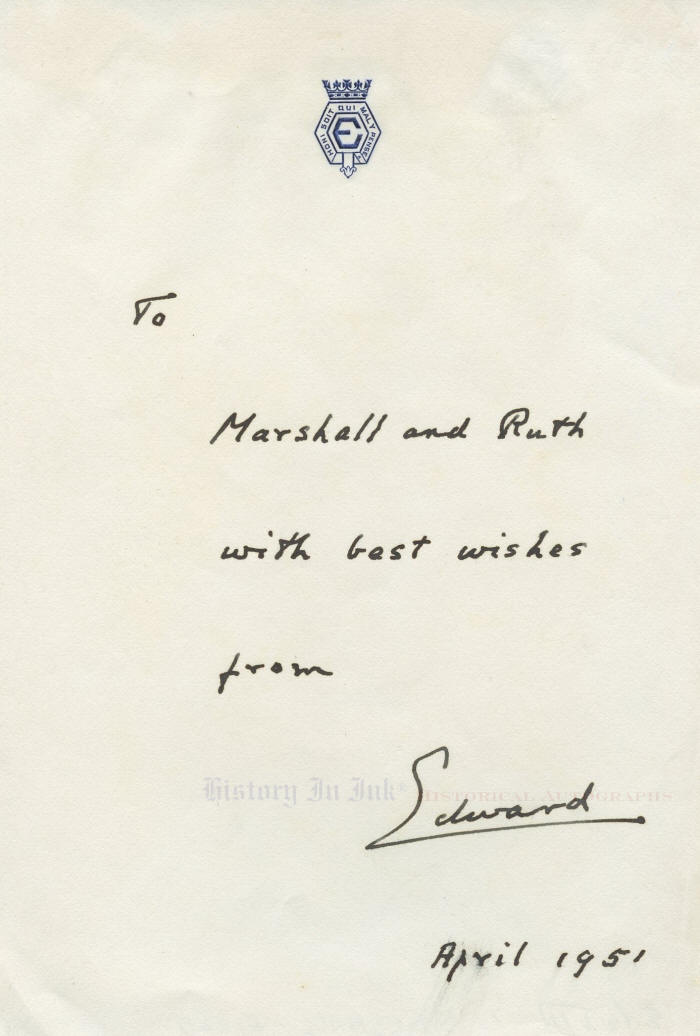 HONI SOIT QUI MAL Y PENSE
E
To
Marshall and Ruth
with best wishes
from
History In Ink® HISTORICAL AUTOGRAPHS
Edward
April 1951